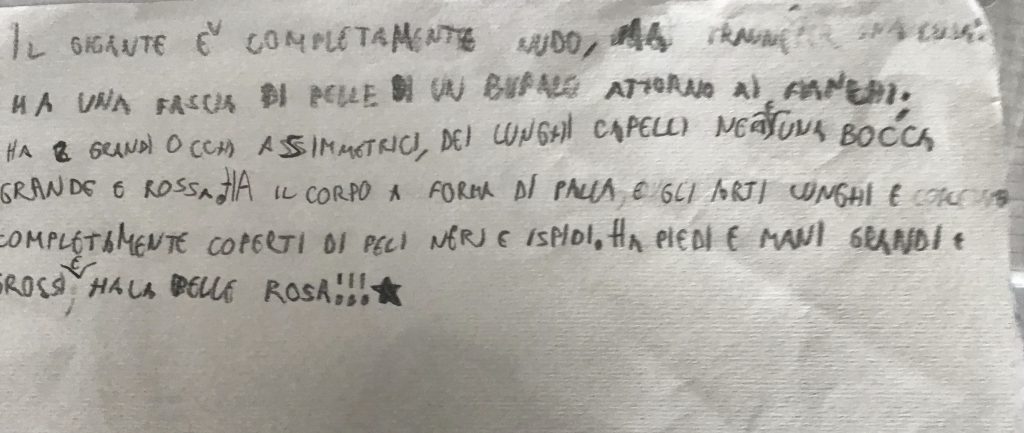 IL GIGANTE E' COMPLETAMENTE NUDO, MA TRANNE PER UNA COSA:
HA UNA FASCIA DI PELLE DI UN BUFALO ATTORNO AI FIANCHI.
HA 2 GRANDI OCCHI ASSIMMETRICI, DEI LUNGHI CAPELLI NERI, UNA BOCCA
GRANDE E ROSSA. HA IL CORPO A FORMA DI PALLA, E GLI ARTI LUNGHI E
COMPLETAMENTE COPERTI DI PELI NERI E ISPIDI. HA PIEDI E MANI GRANDI E
GROSSI, E HA LA PELLE ROSA!!!★